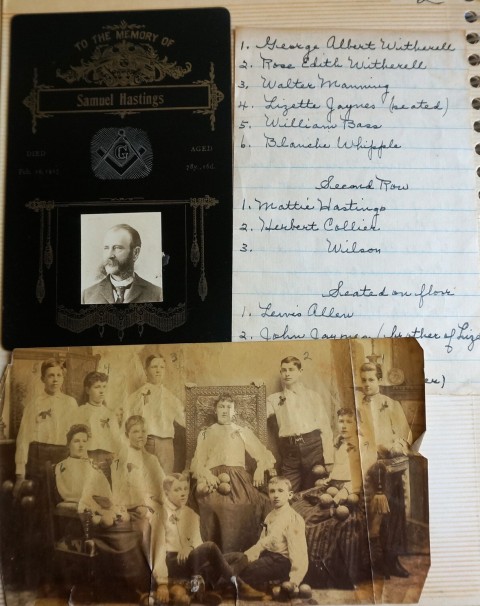 TO THE MEMORY OF
Samuel Hastings
G
DIED
AGED
1. George Albert Witherell
2. Rose Edith Witherell
3. Walter Manning
4. Lizette Jaynes (seated)
5. William Bass
6. Blanche Whipple
Second Row
1. Mattie Hastings
2. Herbert Collier
3. Wilson
Seated on floor
1. Lewis Allen
2. John Jaynes (brother of Lize
3
2